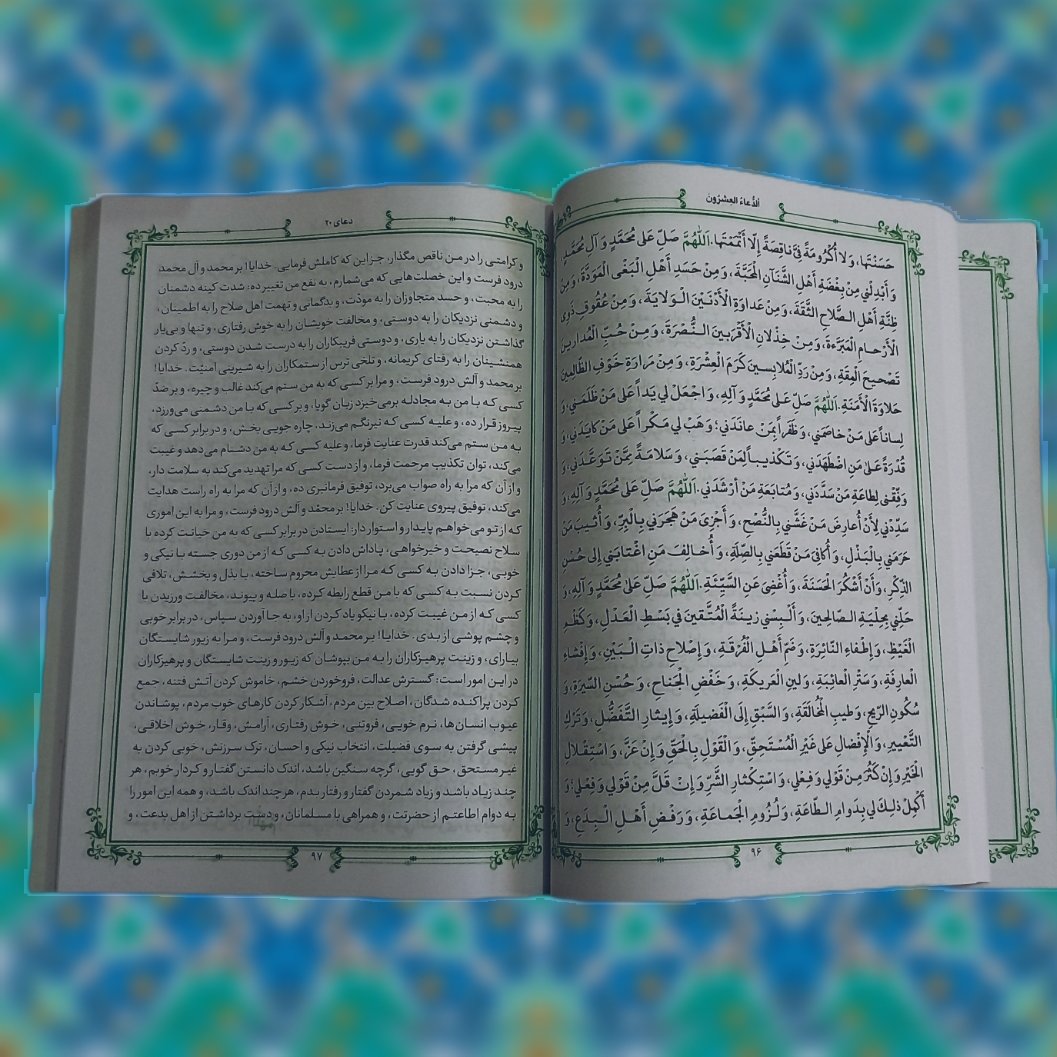 اَلدُّعاءُ العِشرُون
حَسَّنْتَها، وَ لا اُكْرُومَةً فِيَّ ناقِصَةً إِلّا أَتْمَمْتَها. اَللّٰهُمَّ صَلِّ عَلىٰ مُحَمَّدٍ وَ آلِ مُحَمَّدٍ
وَ أَبْدِلْني مِنْ بِغْضَةِ أَهْلِ الشَّنَآنِ الْمَحَبَّةَ، وَ مِنْ حَسَدِ أَهْلِ الْبَغْيِ الْمَوَدَّةَ، وَ مِنْ
ظِنَّةِ أَهْلِ الصَّلاحِ الثِّقَةَ، وَ مِنْ عَداوَةِ الْأَدْنَيْنَ الْوَلايَةَ، وَ مِنْ عُقُوقِ ذَوِي
الْأَرْحامِ الْمَبَرَّةَ، وَ مِنْ خِذْلانِ الْأَقْرَبينَ النُّصْرَةَ، وَ مِنْ حُبِّ الْمُدارينَ
تَصْحيحَ الْمِقَةِ، وَ مِنْ رَدِّ الْمُلابِسينَ كَرَمَ الْعِشْرَةِ، وَ مِنْ مَرارَةِ خَوْفِ الظّالِمينَ
حَلاوَةَ الْأَمَنَةِ. اَللّٰهُمَّ صَلِّ عَلىٰ مُحَمَّدٍ وَ آلِهِ، وَ اجْعَلْ لي يَداً عَلىٰ مَنْ ظَلَمَني، وَ
لِساناً عَلىٰ مَنْ خاصَمَني، وَ ظَفَراً بِمَنْ عانَدَني؛ وَ هَبْ لي مَكْراً عَلىٰ مَنْ كايَدَني، وَ
قُدْرَةً عَلىٰ مَنِ اضْطَهَدَني، وَ تَكْذيباً لِمَنْ قَصَبَني، وَ سَلامَةً مِمَّنْ تَوَعَّدَني، وَ
وَفِّقْني لِطاعَةِ مَنْ سَدَّدَني، وَ مُتابَعَةِ مَنْ أَرْشَدَني. اَللّٰهُمَّ صَلِّ عَلىٰ مُحَمَّدٍ وَ آلِهِ، وَ
سَدِّدْني لِأَنْ أُعارِضَ مَنْ غَشَّني بِالنُّصْحِ، وَ أَجْزِيَ مَنْ هَجَرَني بِالْبِرِّ، وَ أُثيبَ مَنْ
حَرَمَني بِالْبَذْلِ، وَ أُكافِيَ مَنْ قَطَعَني بِالصِّلَةِ، وَ أُخالِفَ مَنِ اغْتابَني إِلىٰ حُسْنِ
الذِّكْرِ، وَ أَنْ أَشْكُرَ الْحَسَنَةَ، وَ أُغْضِيَ عَنِ السَّيِّئَةِ. اَللّٰهُمَّ صَلِّ عَلىٰ مُحَمَّدٍ وَ آلِهِ، وَ
حَلِّني بِحِلْيَةِ الصّالِحينَ، وَ أَلْبِسْني زينَةَ الْمُتَّقينَ في بَسْطِ الْعَدْلِ، وَ كَظْمِ
الْغَيْظِ، وَ إِطْفاءِ النّائِرَةِ، وَ ضَمِّ أَهْلِ الْفُرْقَةِ، وَ إِصْلاحِ ذاتِ الْبَيْنِ، وَ إِفْشاءِ
الْعارِفَةِ، وَ سَتْرِ الْعائِبَةِ، وَ لينِ الْعَريكَةِ، وَ خَفْضِ الْجَناحِ، وَ حُسْنِ السّيرَةِ، وَ
سُكُونِ الرّيحِ، وَ طيبِ الْمُخالَقَةِ، وَ السَّبْقِ إِلَى الْفَضيلَةِ، وَ إيثارِ التَّفَضُّلِ، وَ تَرْكِ
التَّعْييرِ، وَ الْإِفْضالِ عَلىٰ غَيْرِ الْمُسْتَحِقِّ، وَ الْقَوْلِ بِالْحَقِّ وَ إِنْ عَزَّ، وَ اسْتِقْلالِ
الْخَيْرِ وَ إِنْ كَثُرَ مِنْ قَوْلي وَ فِعْلي، وَ اسْتِكْثارِ الشَّرِّ وَ إِنْ قَلَّ مِنْ قَوْلي وَ فِعْلي؛ وَ
أَكْمِلْ ذٰلِكَ لي بِدَوامِ الطّاعَةِ، وَ لُزُومِ الْجَماعَةِ، وَ رَفْضِ أَهْلِ الْبِدَعِ، وَ
۹۶
دعای ۲۰
و کرامتی را در من ناقص مگذار، جز این که کاملش فرمایی. خدایا! بر محمد و آل محمد
درود فرست و این خصلت‌هایی که می‌شمارم، به نفع من تغییر ده: شدت کینه دشمنان
را به محبت، و حسد متجاوزان را به مودّت، و بدگمانی و تهمت اهل صلاح را به اطمینان،
و دشمنی نزدیکان را به دوستی، و مخالفت خویشان را به خوش رفتاری، و تنها و بی‌یار
گذاشتن نزدیکان را به یاری، و دوستی فریبکاران را به درست شدن دوستی، و ردّ کردن
همنشینان را به رفتای کریمانه، و تلخی ترس از ستمکاران را به شیرینی امنیّت. خدایا!
بر محمد و آلش درود فرست، و مرا بر کسی که به من ستم می‌کند غالب و چیره، و بر ضدّ
کسی که با من به مجادله برمی‌خیزد زبان گویا، و بر کسی که با من دشمنی می‌ورزد،
پیروز قرار ده، و علیه کسی که نیرنگم می‌زند، چاره جویی بخش، و در برابر کسی که
به من ستم می‌کند قدرت عنایت فرما، و علیه کسی که به من دشنام می‌دهد و غیبت
می‌کند، توان تکذیب مرحمت فرما، و از دست کسی که مرا تهدید می‌کند به سلامت دار،
و از آن که مرا به راه صواب می‌برد، توفیق فرمانبری ده، و از آن که مرا به راه راست هدایت
می‌کند، توفیق پیروی عنایت کن. خدایا! بر محمّد و آلش درود فرست، و مرا به این اموری
که از تو می‌خواهم پایدار و استوار دار: ایستادن در برابر کسی که به من خیانت کرده با
سلاح نصیحت و خیرخواهی، پاداش دادن به کسی که از من دوری جسته با نیکی و
خوبی، جزا دادن به کسی که مرا از عطایش محروم ساخته، با بذل و بخشش، تلافی
کردن نسبت به کسی که با من قطع رابطه کرده، با صله و پیوند، مخالفت ورزیدن با
کسی که از من غیبت کرده، با نیکو یاد کردن از او، به جا آوردن سپاس، در برابر خوبی
و چشم پوشی از بدی. خدایا! بر محمد و آلش درود فرست، و مرا به زیور شایستگان
بیارای، و زینت پرهیزکاران را به من بپوشان که زیور و زینت شایستگان و پرهیزکاران
در این امور است: گسترش عدالت، فروخوردن خشم، خاموش کردن آتش فتنه، جمع
کردن پراکنده شدگان، اصلاح بین مردم، آشکار کردن کارهای خوب مردم، پوشاندن
عیوب انسان‌ها، نرم خویی، فروتنی، خوش رفتاری، آرامش، وقار، خوش اخلاقی،
پیشی گرفتن به سوی فضیلت، انتخاب نیکی و احسان، ترک سرزنش، خوبی کردن به
غیر مستحق، حق گویی، گرچه سنگین باشد، اندک دانستن گفتار و کردار خوبم، هر
چند زیاد باشد و زیاد شمردن گفتار و رفتار بدم، هر چند اندک باشد، و همه این امور را
به دوام اطاعتم از حضرتت، و همراهی با مسلمانان، و دست برداشتن از اهل بدعت، و
۹۷